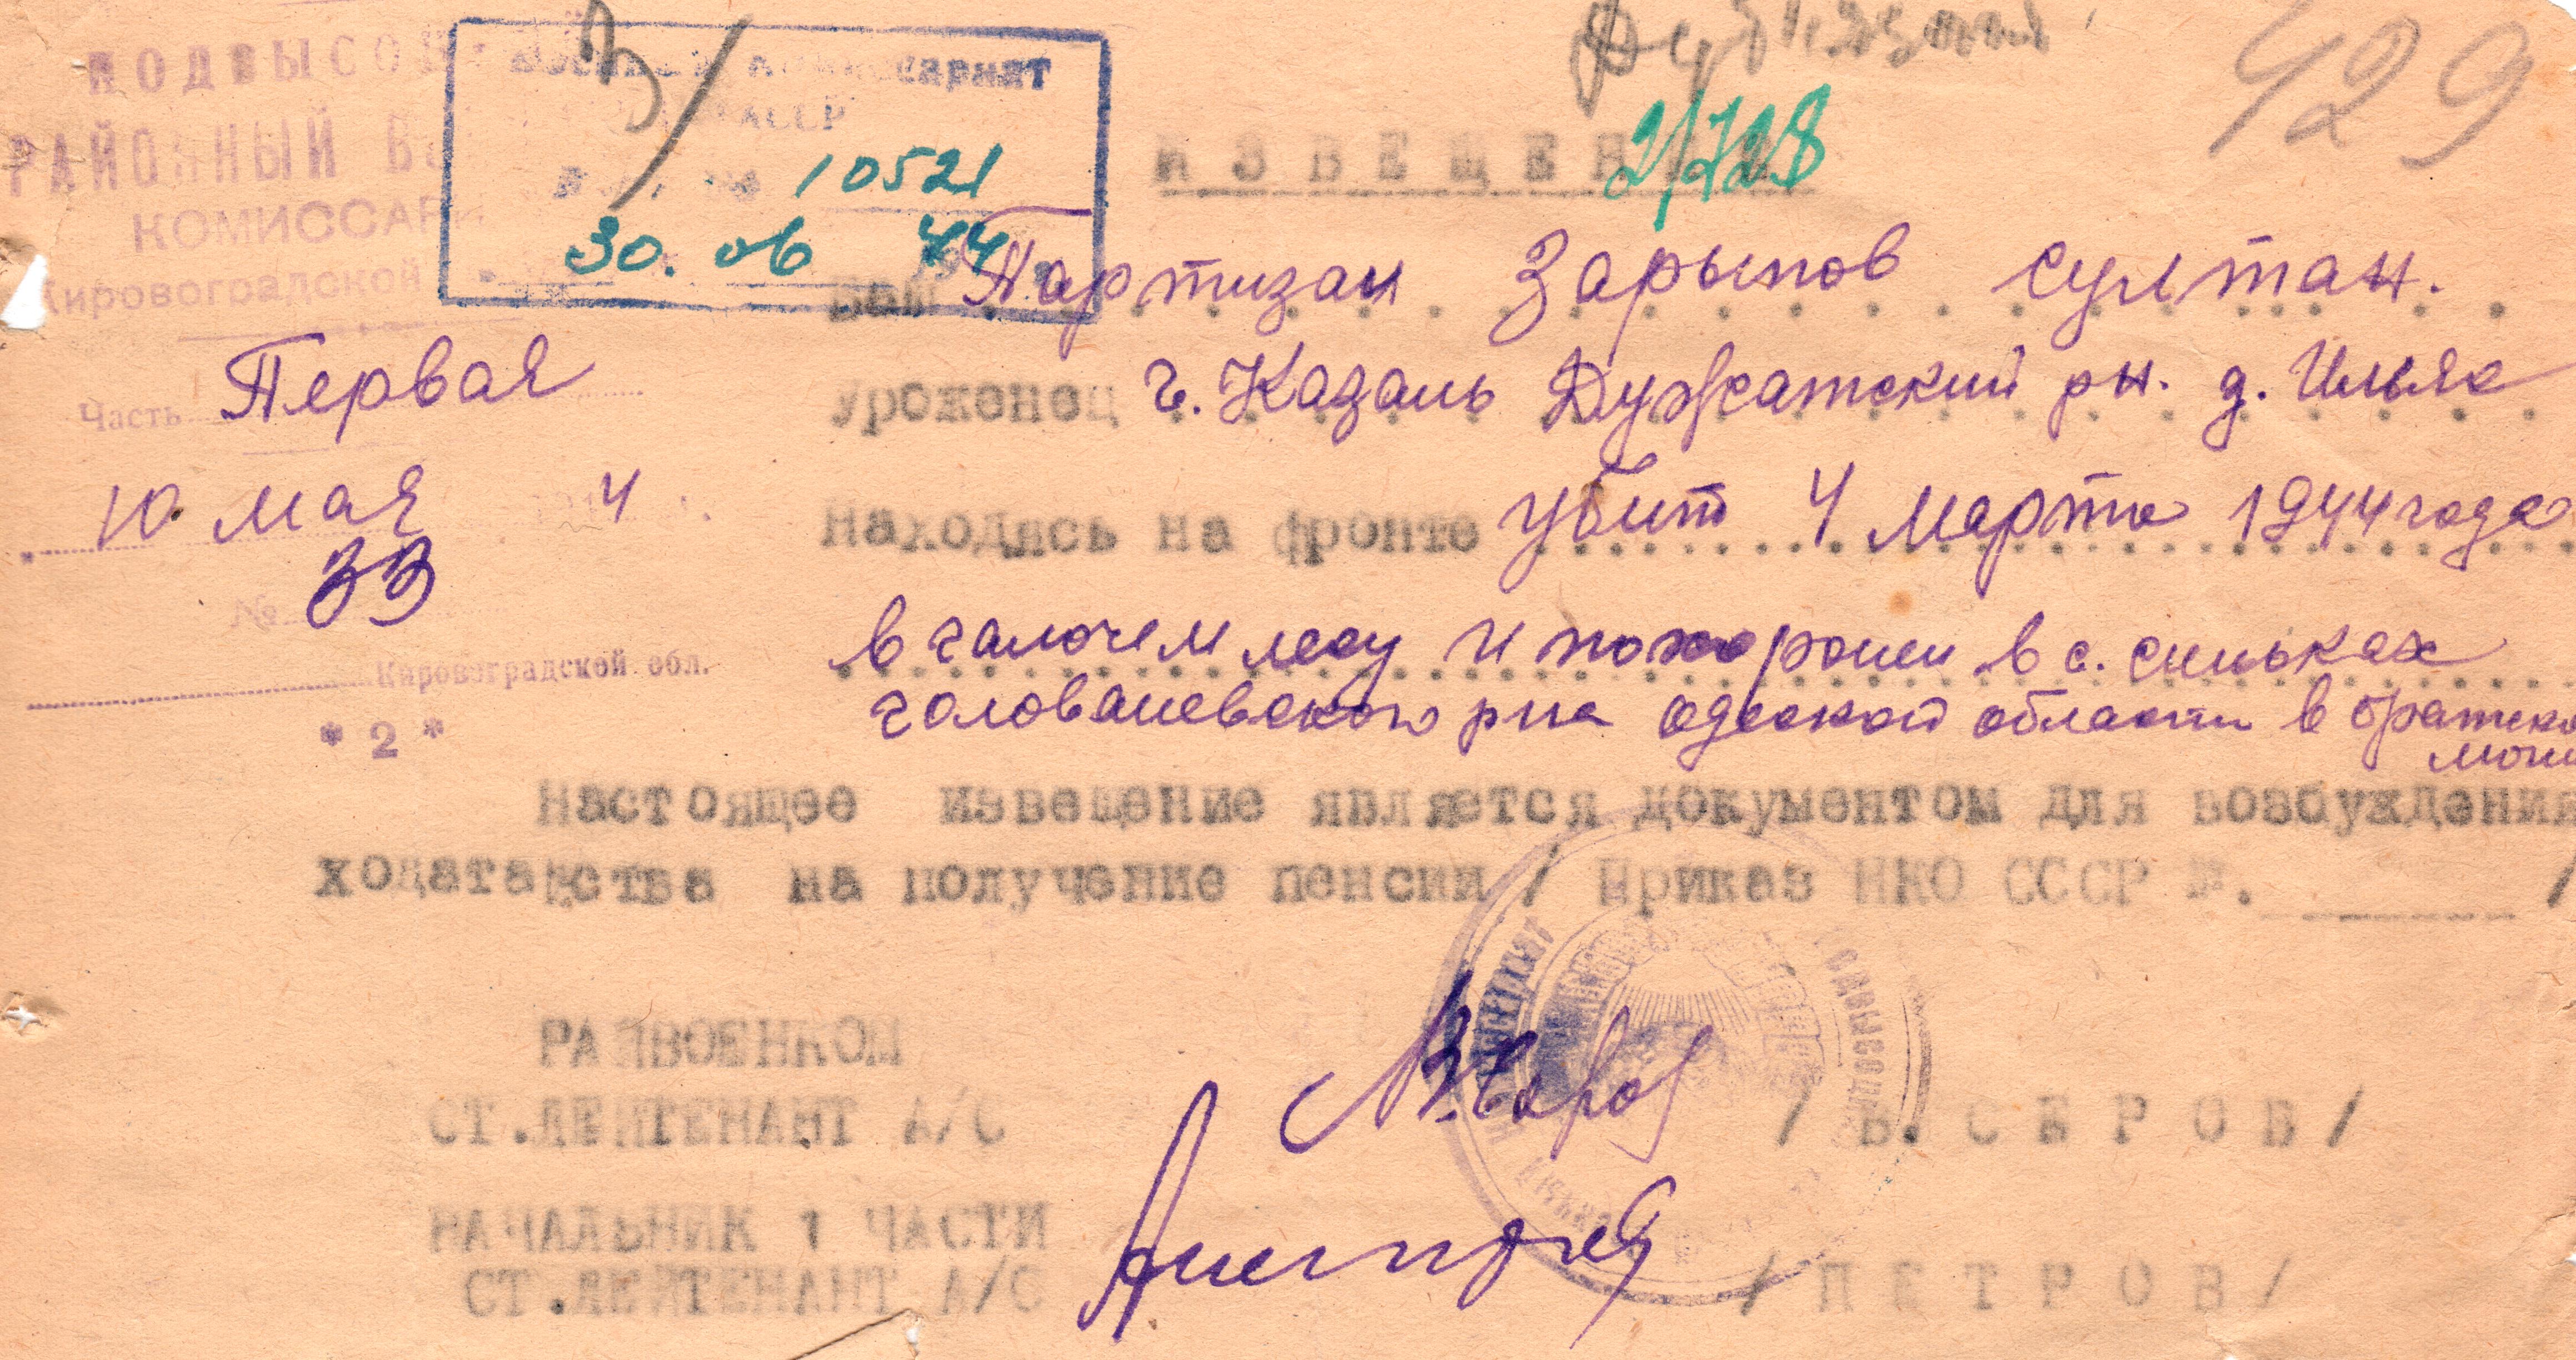 429
ПОДВЫСОЦ
РАЙОННЫЙ
КОМИССАРИ
Кировоградской
АССР
10521
30. 06 44
ИЗВЕЩЕН
2/728
Ваш Партизан Зарыпов султан.
Часть Первая
Уроженец г. Казань Дужатский рн. д. Ильяк
10 мая 4
Находясь на фронте убит 4 марта 1944 года
№ 33
в галочем лесу и похоронен в с. синьках
Кировоградской обл.
голованевского рна одеской области в братско
* 2 *
моги
Настоящее извещение является документом для возбуждения
ходатайства на получение пенсии / Приказ НКО СССР №. /
РАЙВОЕНКОМ
СТ.ЛЕЙТЕНАНТ А/С / В. СЕРОВ/
НАЧАЛЬНИК 1 ЧАСТИ
СТ.ЛЕЙТЕНАНТ А/С / ПЕТРОВ/